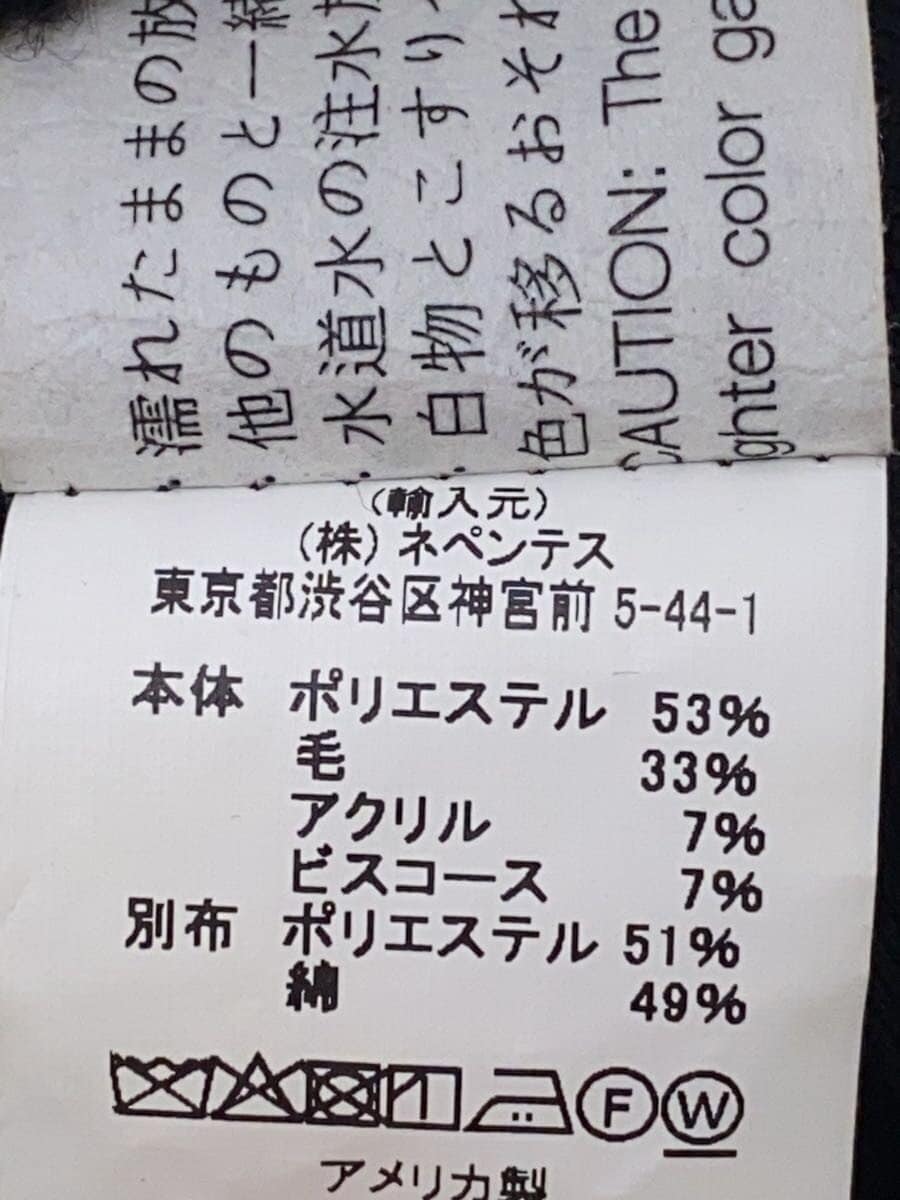 濡れたままの放
他のものと一緒
水道水の注水
白物とこすり
色が移るおそれ
CAUTION: The
ghter color ga
(輸入元)
(株)ネペンテス
東京都渋谷区神宮前 5-44-1
本体 ポリエステル 53%
毛 33%
アクリル 7%
ビスコース 7%
別布 ポリエステル 51%
綿 49%
F W
アメリカ製